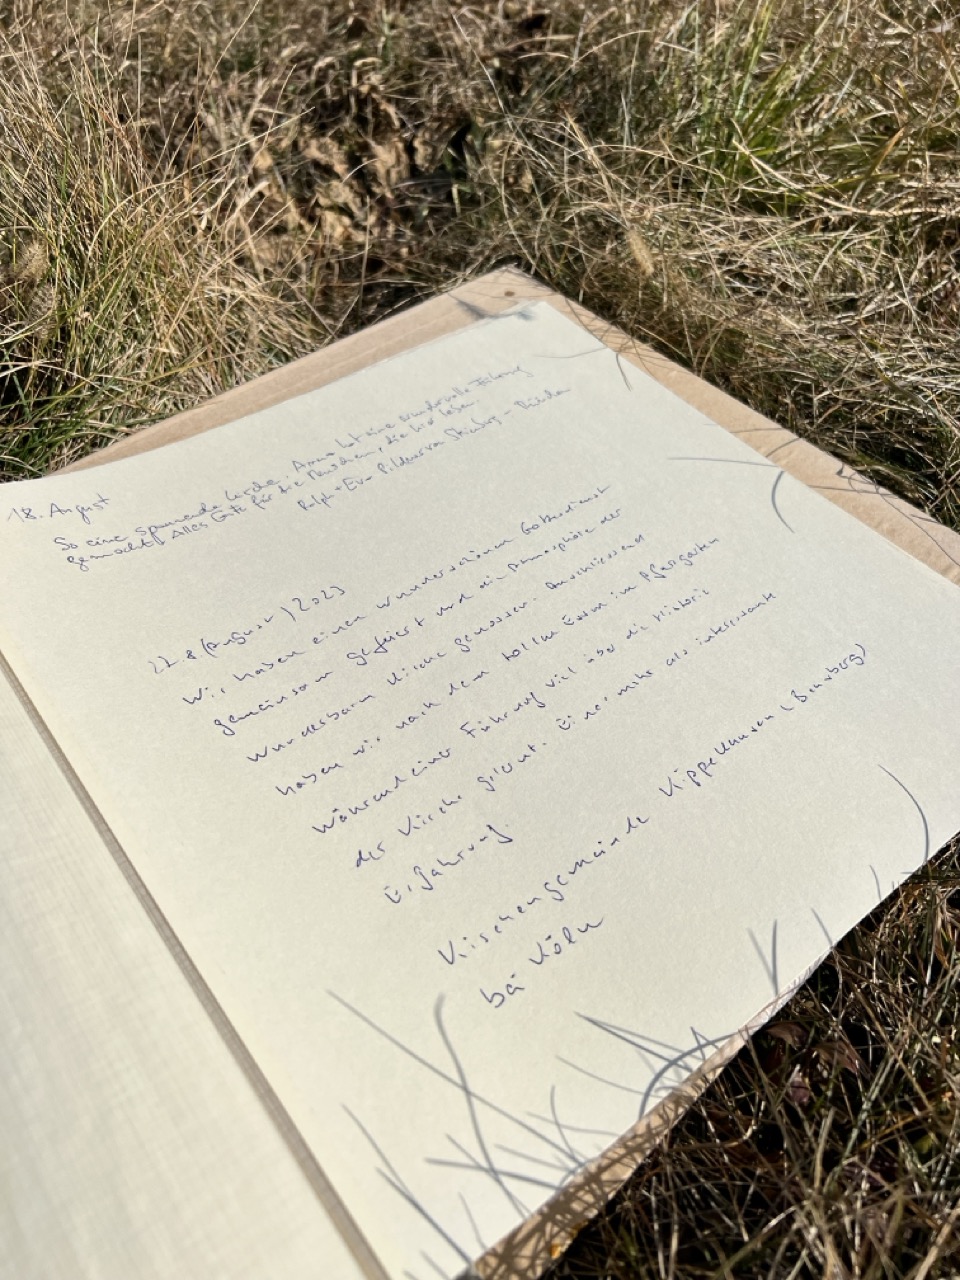 18. August
So eine spannende Kirche. Anna hat eine wundervolle Führung
gemacht. Alles Gute für die Menschen, die hier leben.
Ralph + Eva
27.8 (August) 2023
Wir haben einen wunderschönen Gottesdienst
gemeinsam gefeiert und die Atmosphäre der
wunderbaren Kirche genossen. Anschliessend
haben wir nach dem tollen Essen im Pfarrgarten
während einer Führung viel über die Historie
der Kirche gelernt. Eine mehr als interessante
Erfahrung.
Kirchengemeinde Kippekausen (Bensberg)
bei Köln